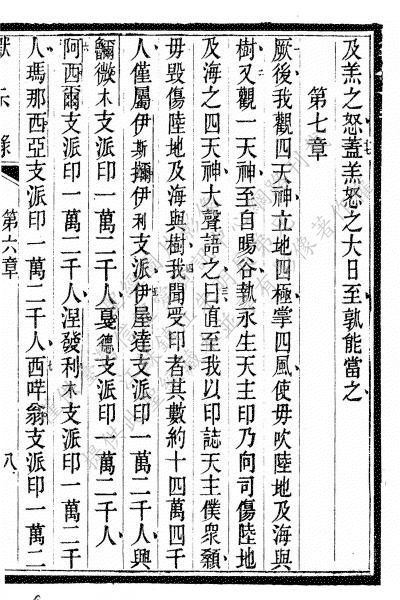 及羔之怒蓋羔怒之大日至孰能當之
第七章
厥後我觀四天神立地四極掌四風使毋吹陸地及海與
樹又觀一天神至自暘谷執永生天主印乃向司傷陸地
及海之四天神大聲語之曰直至我以印誌天主僕衆額
毋毀傷陸地及海與樹我聞受印者其數約十四萬四千
人僅屬伊斯爾伊利支派伊屋達支派印一萬二千人與
微木支派印一萬二千人戛德支派印一萬二千人
阿西爾支派印一萬二千人涅發利木支派印一萬二千
人瑪那西亞支派印一萬二千人西哶翁支派印一萬二
默示錄
第六章
八